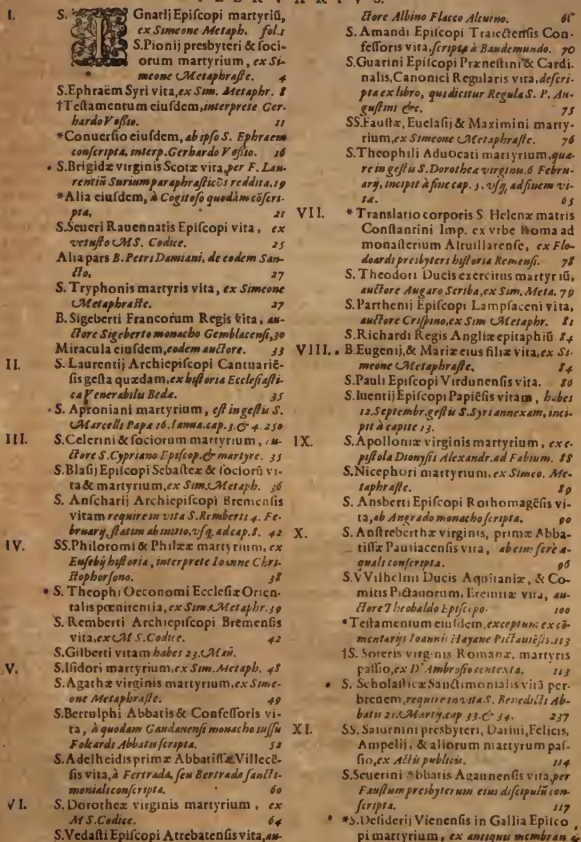 I. S. IGnatij Episcopi martyriũ,
ex Simeone Metaph. fol.1
S.Pionij presbyteri & soci-
orum martyrium, ex Si-
meone Metaphraste. 4
S.Ephraëm Syri vita,ex Sim. Metaphr. 8
†Testamentum eiusdem,interprete Ger-
hardo Vossio. 11
*Conuersio eiusdem, ab ipso S. Ephraem
conscripta, interp.Gerhardo Vossio. 16
• S.Brigidæ virginis Scotæ vita,per F. Lau-
rentiũ Surium paraphrasticῶs reddita.19
*Alia eiusdem, à Cogitoso quodam cõscri-
pta, 21
S.Seueri Rauennatis Episcopi vita, ex
vetusto MS. Codice. 25
Alia pars B.Petri Damiani, de eodem San-
cto, 27
S. Tryphonis martyris vita, ex Simeone
Metaphraste. 27
B. Sigeberti Francorum Regis vita, au-
ctore Sigeberto monacho Gemblacensi,30
Miracula eiusdem,eodem auctore. 33
II. S. Laurentij Archiepiscopi Cantuariẽ-
sis gesta quædam,ex historia Ecclesiasti-
ca Venerabilis Bedæ. 35
• S. Aproniani martyrium, est in gestis S.
Marcelli Papæ 16.Ianua.cap.3.& 4. 250
III. S.Celerini & sociorum martyrium, au-
ctore S.Cypriano Episcop.& martyre. 35
S.Blasij Episcopi Sebasteæ & sociorũ vi-
ta & martyrium,ex Sim.Metaph. 36
S. Anscharij Archiepiscopi Bremensis
vitam require in vita S.Remberti 4. Fe-
bruarij, statim ab initio,vsq, ad cap.8. 42
IV. SS.Philoromi & Philææ martyrium, ex
Eusebij historia, interprete Ioanne Chri-
stophorsono. 38
• S. Theophi Oeconomi Ecclesiæ Orien-
talis pœnitentia, ex Sim.Metaphr.39
S. Remberti Archiepiscopi Bremensis
vita,ex MS.Codice. 42
S.Gilberti vitam habes 23.Maii.
V. S.Isidori martyrium,ex Sim.Metaph. 48
S.Agathæ virginis martyrium,ex Sime-
one Metaphraste. 49
S.Bertulphi Abbatis & Confessoris vi-
ta, à quodam Gandauensi monacho iussu
Folcardi Abbatis scripta. 52
S.Adelheidis primæ Abbatissæ Villecẽ-
sis vita,à Fertrada, seu Bertrada sancti-
moniali conscripta. 60
VI. S.Dorotheæ virginis martyrium, ex
MS.Codice. 64
S.Vedasti Episcopi Atrebatensis vita,au-
ctore Albino Flacco Alcuino. 66
S. Amandi Episcopi Traiectensis Con-
fessoris vita,scripta à Baudemundo. 70
S.Guarini Episcopi Prænestini & Cardi-
nalis,Canonici Regularis vita,descri-
pta ex libro, qui dicitur Regula S. P. Au-
gustini &c. 75
SS.Faustæ, Euelasij & Maximini marty-
rium,ex Simeone Metaphraste. 76
S.Theophili Aduocati martyrium,quæ-
re in gestis S.Dorotheæ virginis.6 Febru-
arij, incipit à fine cap. 3. vsq, ad finem vi-
tæ. 65
VII. *Translatio corporis S. Helenæ matris
Constantini Imp. ex vrbe Roma ad
monasterium Altuillarense, ex Flo-
doardi presbyteri historia Remensi. 78
S.Theodori Ducis exercitus martyriũ,
auctore Augaro Scriba,ex Sim. Meta. 79
S.Parthenij Episcopi Lampsaceni vita,
auctore Crispino,ex Sim Metaphr. 81
S.Richardi Regis Angliæ epitaphiũ 84
VIII. • B.Eugenij,& Mariæ eius filiæ vita,ex Si-
meone Metaphraste. 84
S.Pauli Episcopi Virdunensis vita. 86
S.Iuentij Episcopi Papiẽsis vitam, habes
12.Septembr.gestis S.Syri annexam,inci-
pit à capite 13.
IX. S.Apolloniæ virginis martyrium, ex e-
pistola Dionysii Alexandr.ad Fabium. 88
S.Nicephori martyrium, ex Simeo. Me-
taphraste. 89
S. Ansberti Episcopi Rothomagẽsis vi-
ta,ab Angrado monacho scripta. 90
X. S. Anstreberthæ virginis, primæ Abba-
tissæ Pauliacensis vita, ab eius ferè æ-
quali conscripta. 96
S.VVilhelmi Ducis Aquitaniæ, & Co-
mitis Pictauorum, Eremitæ vita, au-
ctore Theobaldo Episcopo. 100
*Testamentum eiusdem,exceptum ex cõ-
mentarijs Ioannis Hayanæ Pictauiẽsis.113
†S. Soteris virginis Romanæ, martyris
passio,ex D'Ambrosio contexta. 113
• S. Scholasticæ Sanctimonialis vitã per-
breuem,require in vita S. Benedicti Ab-
batis 21.Martij.cap 33.& 34. 237
XI. SS. Saturnini presbyteri, Datiui,Felicis,
Ampelij, & aliorum martyrum pas-
sio,ex Actis publicis. 114
S.Seuerini Abbatis Agaunensis vita,per
Faustum presbyterum eius discipulũ con-
scripta. 117
*S.Desiderij Viennensis in Gallia Episco
pi martyrium, ex antiquis membran